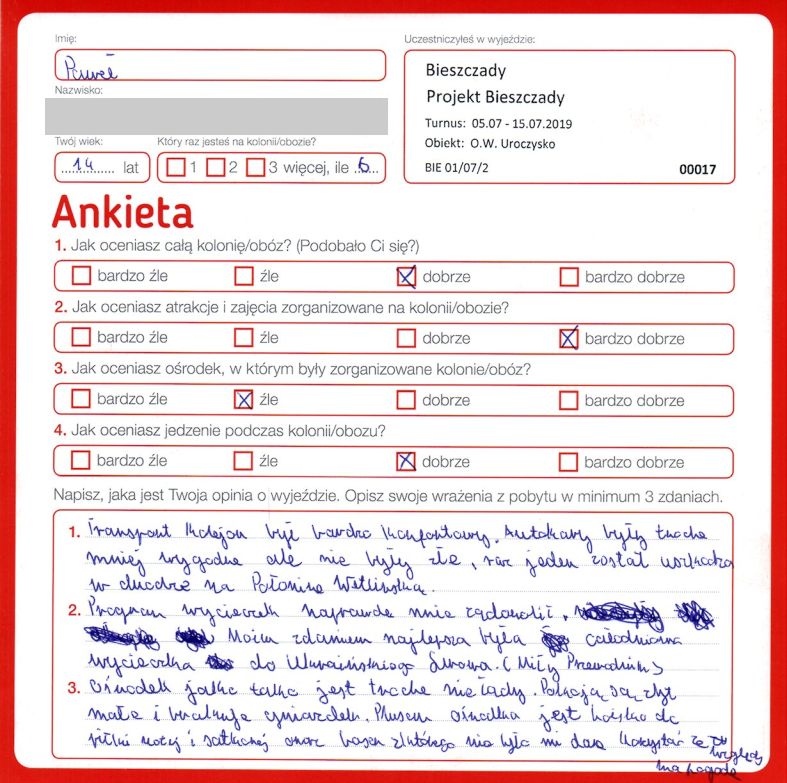 Imię:
Paweł
Nazwisko:
Uczestniczyłeś w wyjeździe:
Bieszczady
Projekt Bieszczady
Turnus: 05.07 - 15.07.2019
Obiekt: O.W. Uroczysko
BIE 01/07/2 00017
Twój wiek: Który raz jesteś na kolonii/obozie?
14 lat 1 2 3 więcej, ile 6
Ankieta
1. Jak oceniasz całą kolonię/obóz? (Podobało Ci się?)
bardzo źle źle dobrze bardzo dobrze
2. Jak oceniasz atrakcje i zajęcia zorganizowane na kolonii/obozie?
bardzo źle źle dobrze bardzo dobrze
3. Jak oceniasz ośrodek, w którym były zorganizowane kolonie/obóz?
bardzo źle źle dobrze bardzo dobrze
4. Jak oceniasz jedzenie podczas kolonii/obozu?
bardzo źle źle dobrze bardzo dobrze
Napisz, jaka jest Twoja opinia o wyjeździe. Opisz swoje wrażenia z pobytu w minimum 3 zdaniach.
1. Transport Koleją był bardzo komfortowy. Autokary były trochę
mniej wygodne ale nie były złe, raz jeden został
w drodze na Połoninę Wetlińską.
2. Program wycieczek naprawdę mnie zadowolił.
Moim zdaniem najlepsza była całodniowa
wycieczka do Ukraińskiego Lwowa. (Miły Przewodnik)
3. Ośrodek jako tako jest trochę nie łady. Pokoje są zbyt
małe i brakuje gniazdek. Plusem ośrodka jest boisko do
piłki nożnej i siatkowej oraz basen z którego nie było mi dane korzystać ze względu
na pogodę